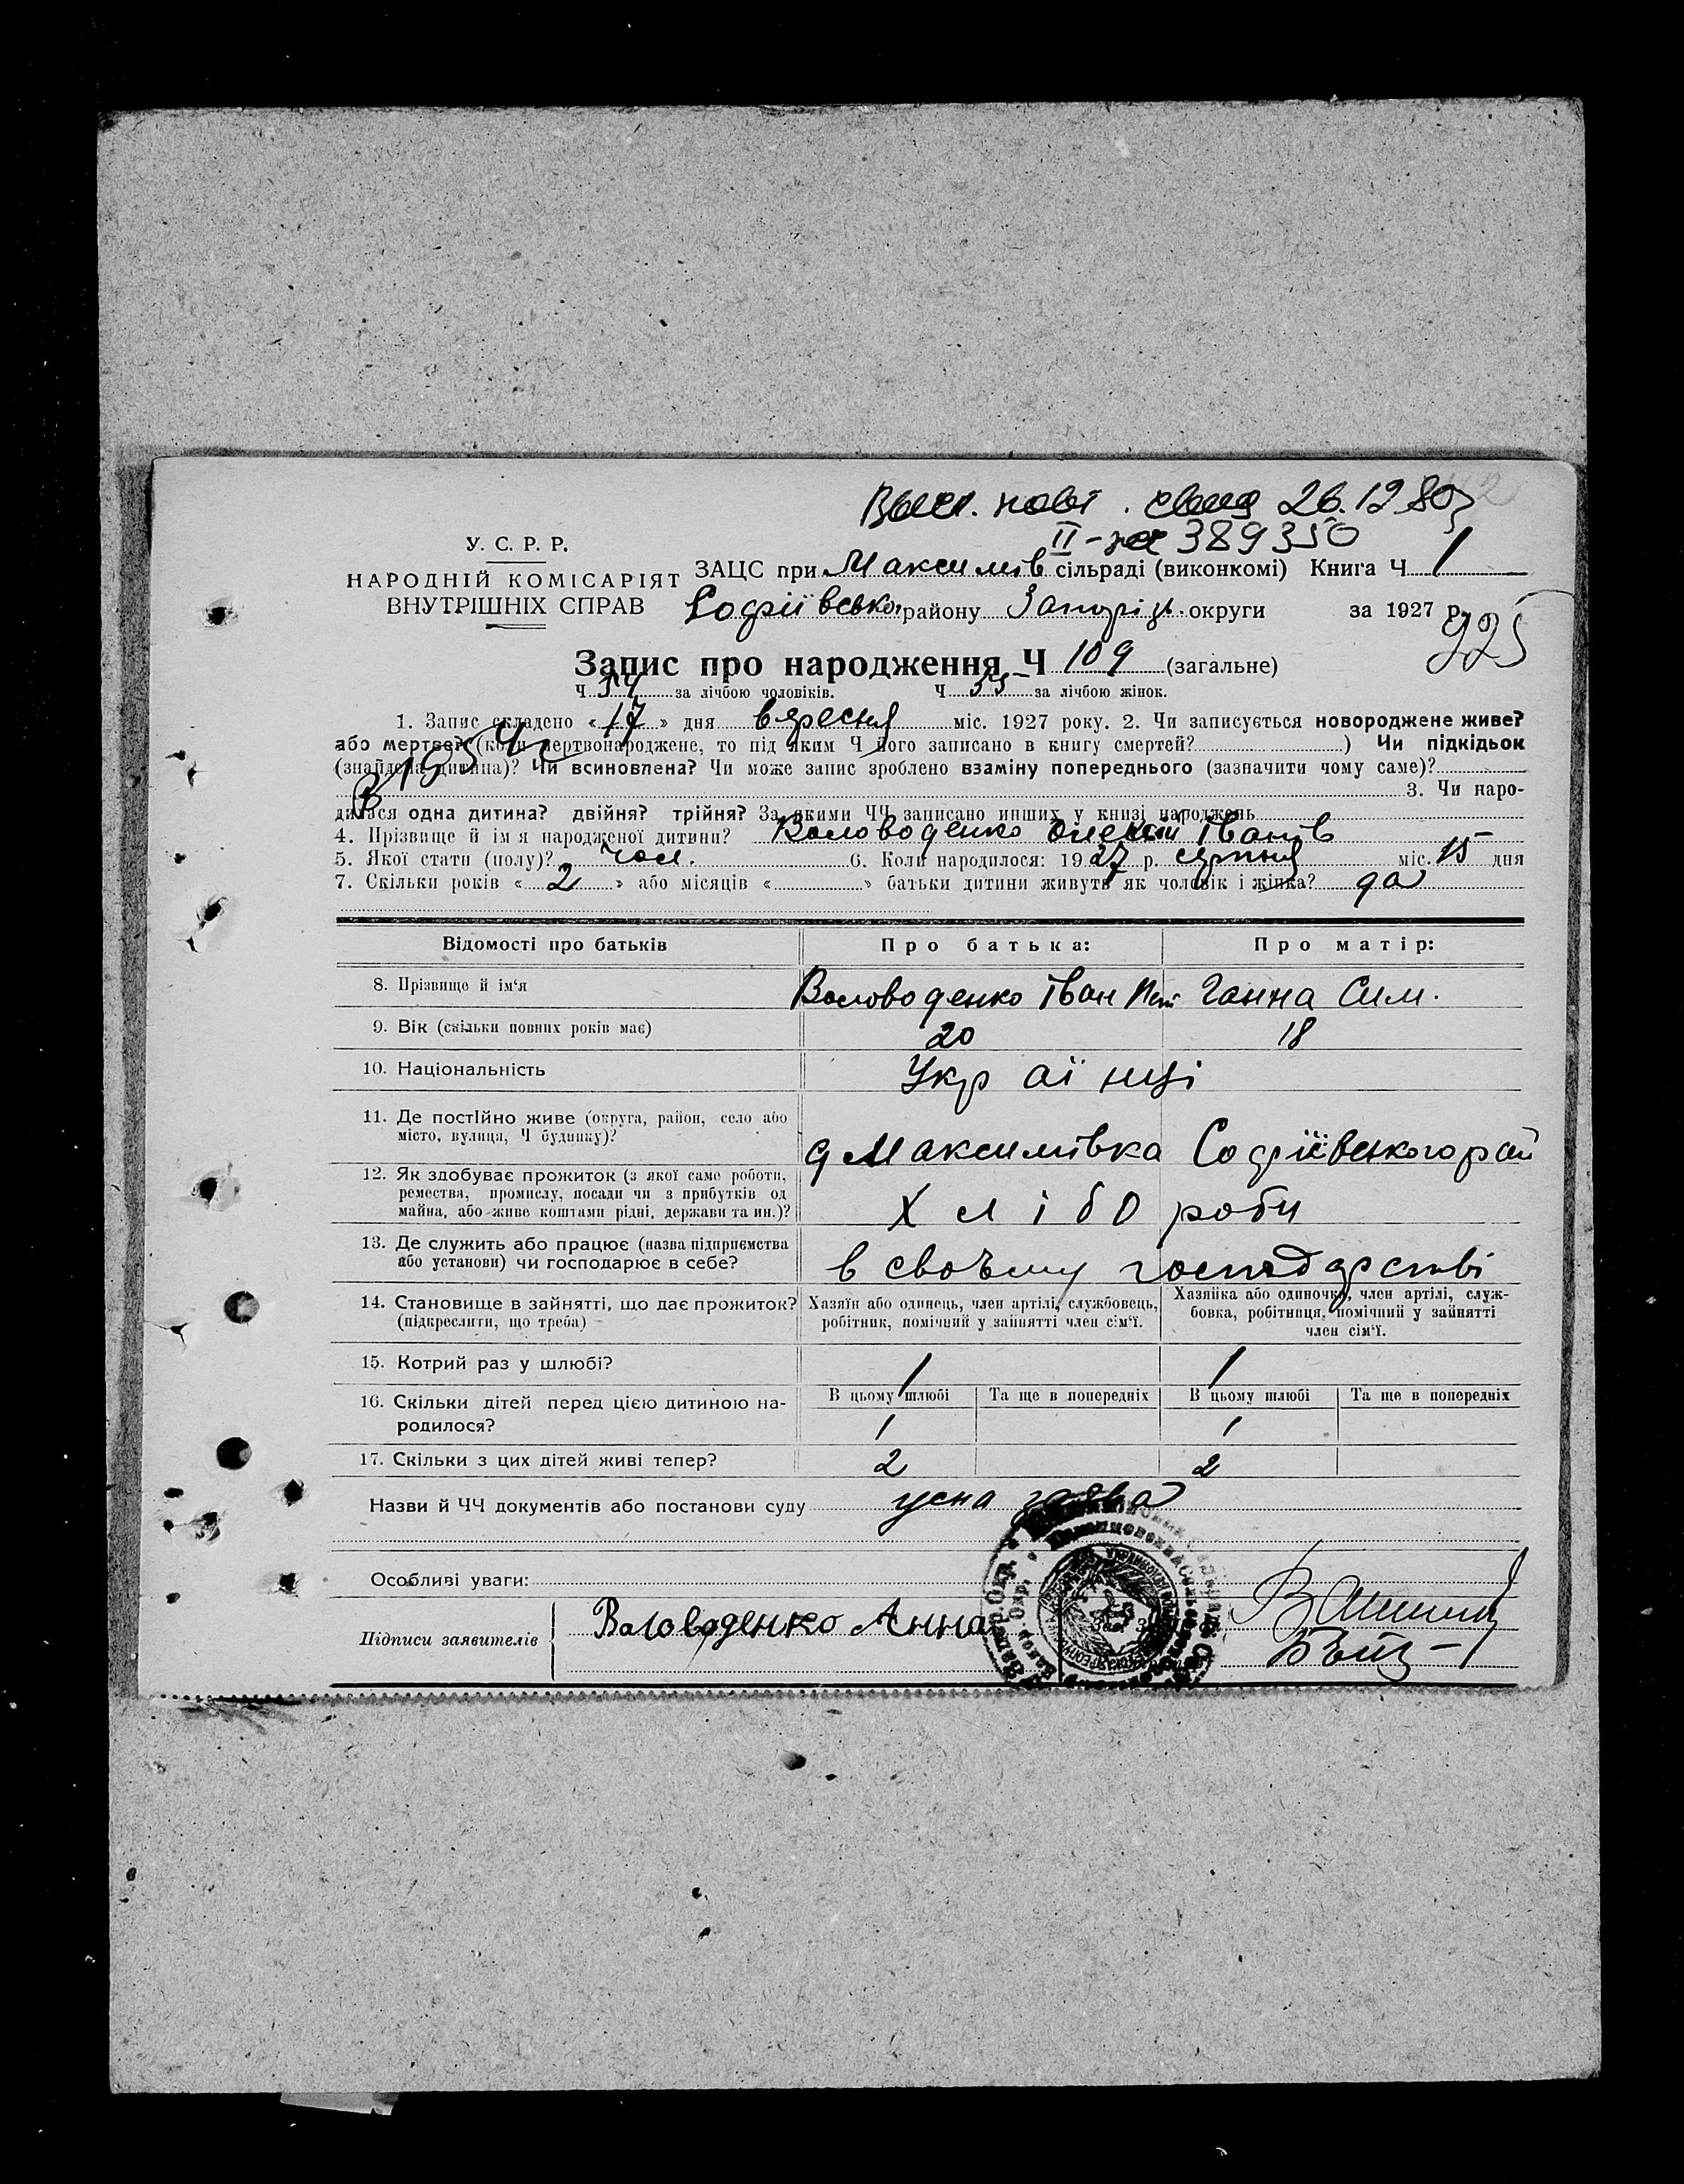 Выд. повт. свид 26.12.80г
II-ЖС 389350
У. С. Р. Р.
НАРОДНІЙ КОМІСАРІЯТ
ВНУТРІШНІХ СПРАВ
ЗАЦС при Максимів сільраді (виконкомі) Книга Ч 1
Софіївсько. району Запоріз. округи за 1927 р.
225
Запис про народження Ч 109 (загальне)
Ч 54 за лічбою чоловіків. Ч 55 за лічбою жінок.
1. Запис складено « 17 » дня вересня міс. 1927 року. 2. Чи записується новороджене живе?
або мертве? (коли мертвонароджене, то під яким Ч його записано в книгу смертей? ) Чи підкідьок
(знайдена дитина)? Чи всиновлена? Чи може запис зроблено взаміну попереднього (зазначити чому саме)?
3. Чи наро-
дилася одна дитина? двійня? трійня? За якими ЧЧ записано инших у книзі народжень
4. Прізвище й ім'я народженої дитини? Воловоденко Олексій Іванів
5. Якої стати (полу)? чол. 6. Коли народилося: 1927 р. серпня міс. 15 дня
7. Скільки років « 2 » або місяців « » батьки дитини живуть як чоловік і жінка? да
Відомості про батьків Про батька: Про матір:
8. Прізвище й ім'я Воловоденко Іван Ганна Сим.
9. Вік (скільки повних років має) 20 18
10. Національність Українці
11. Де постійно живе (округа, район, село або
місто, вулиця, Ч будинку)?
д Максимівка Софіївського рай
12. Як здобуває прожиток (з якої саме роботи,
ремества, промислу, посади чи з прибутків од
майна, або живе коштами рідні, держави та ин.)?
Хлібороби
13. Де служить або працює (назва підприємства
або установи) чи господарює в себе?
в своъму господарстві
14. Становище в зайнятті, що дає прожиток?
(підкреслити, що треба)
Хазяїн або одинець, член артілі, службовець,
робітник, помічний у зайнятті член сім'ї.
Хазяйка або одиночка, член артілі, служ-
бовка, робітниця, помічний у зайнятті
член сім'ї.
15. Котрий раз у шлюбі? 1 1
В цьому шлюбі Та ще в попередніх В цьому шлюбі Та ще в попередніх
16. Скільки дітей перед цією дитиною на-
родилося? 1 1
17. Скільки з цих дітей живі тепер? 2 2
Назви й ЧЧ документів або постанови суду усна заява
Особливі уваги:
Підписи заявителів Воловоденко Анна